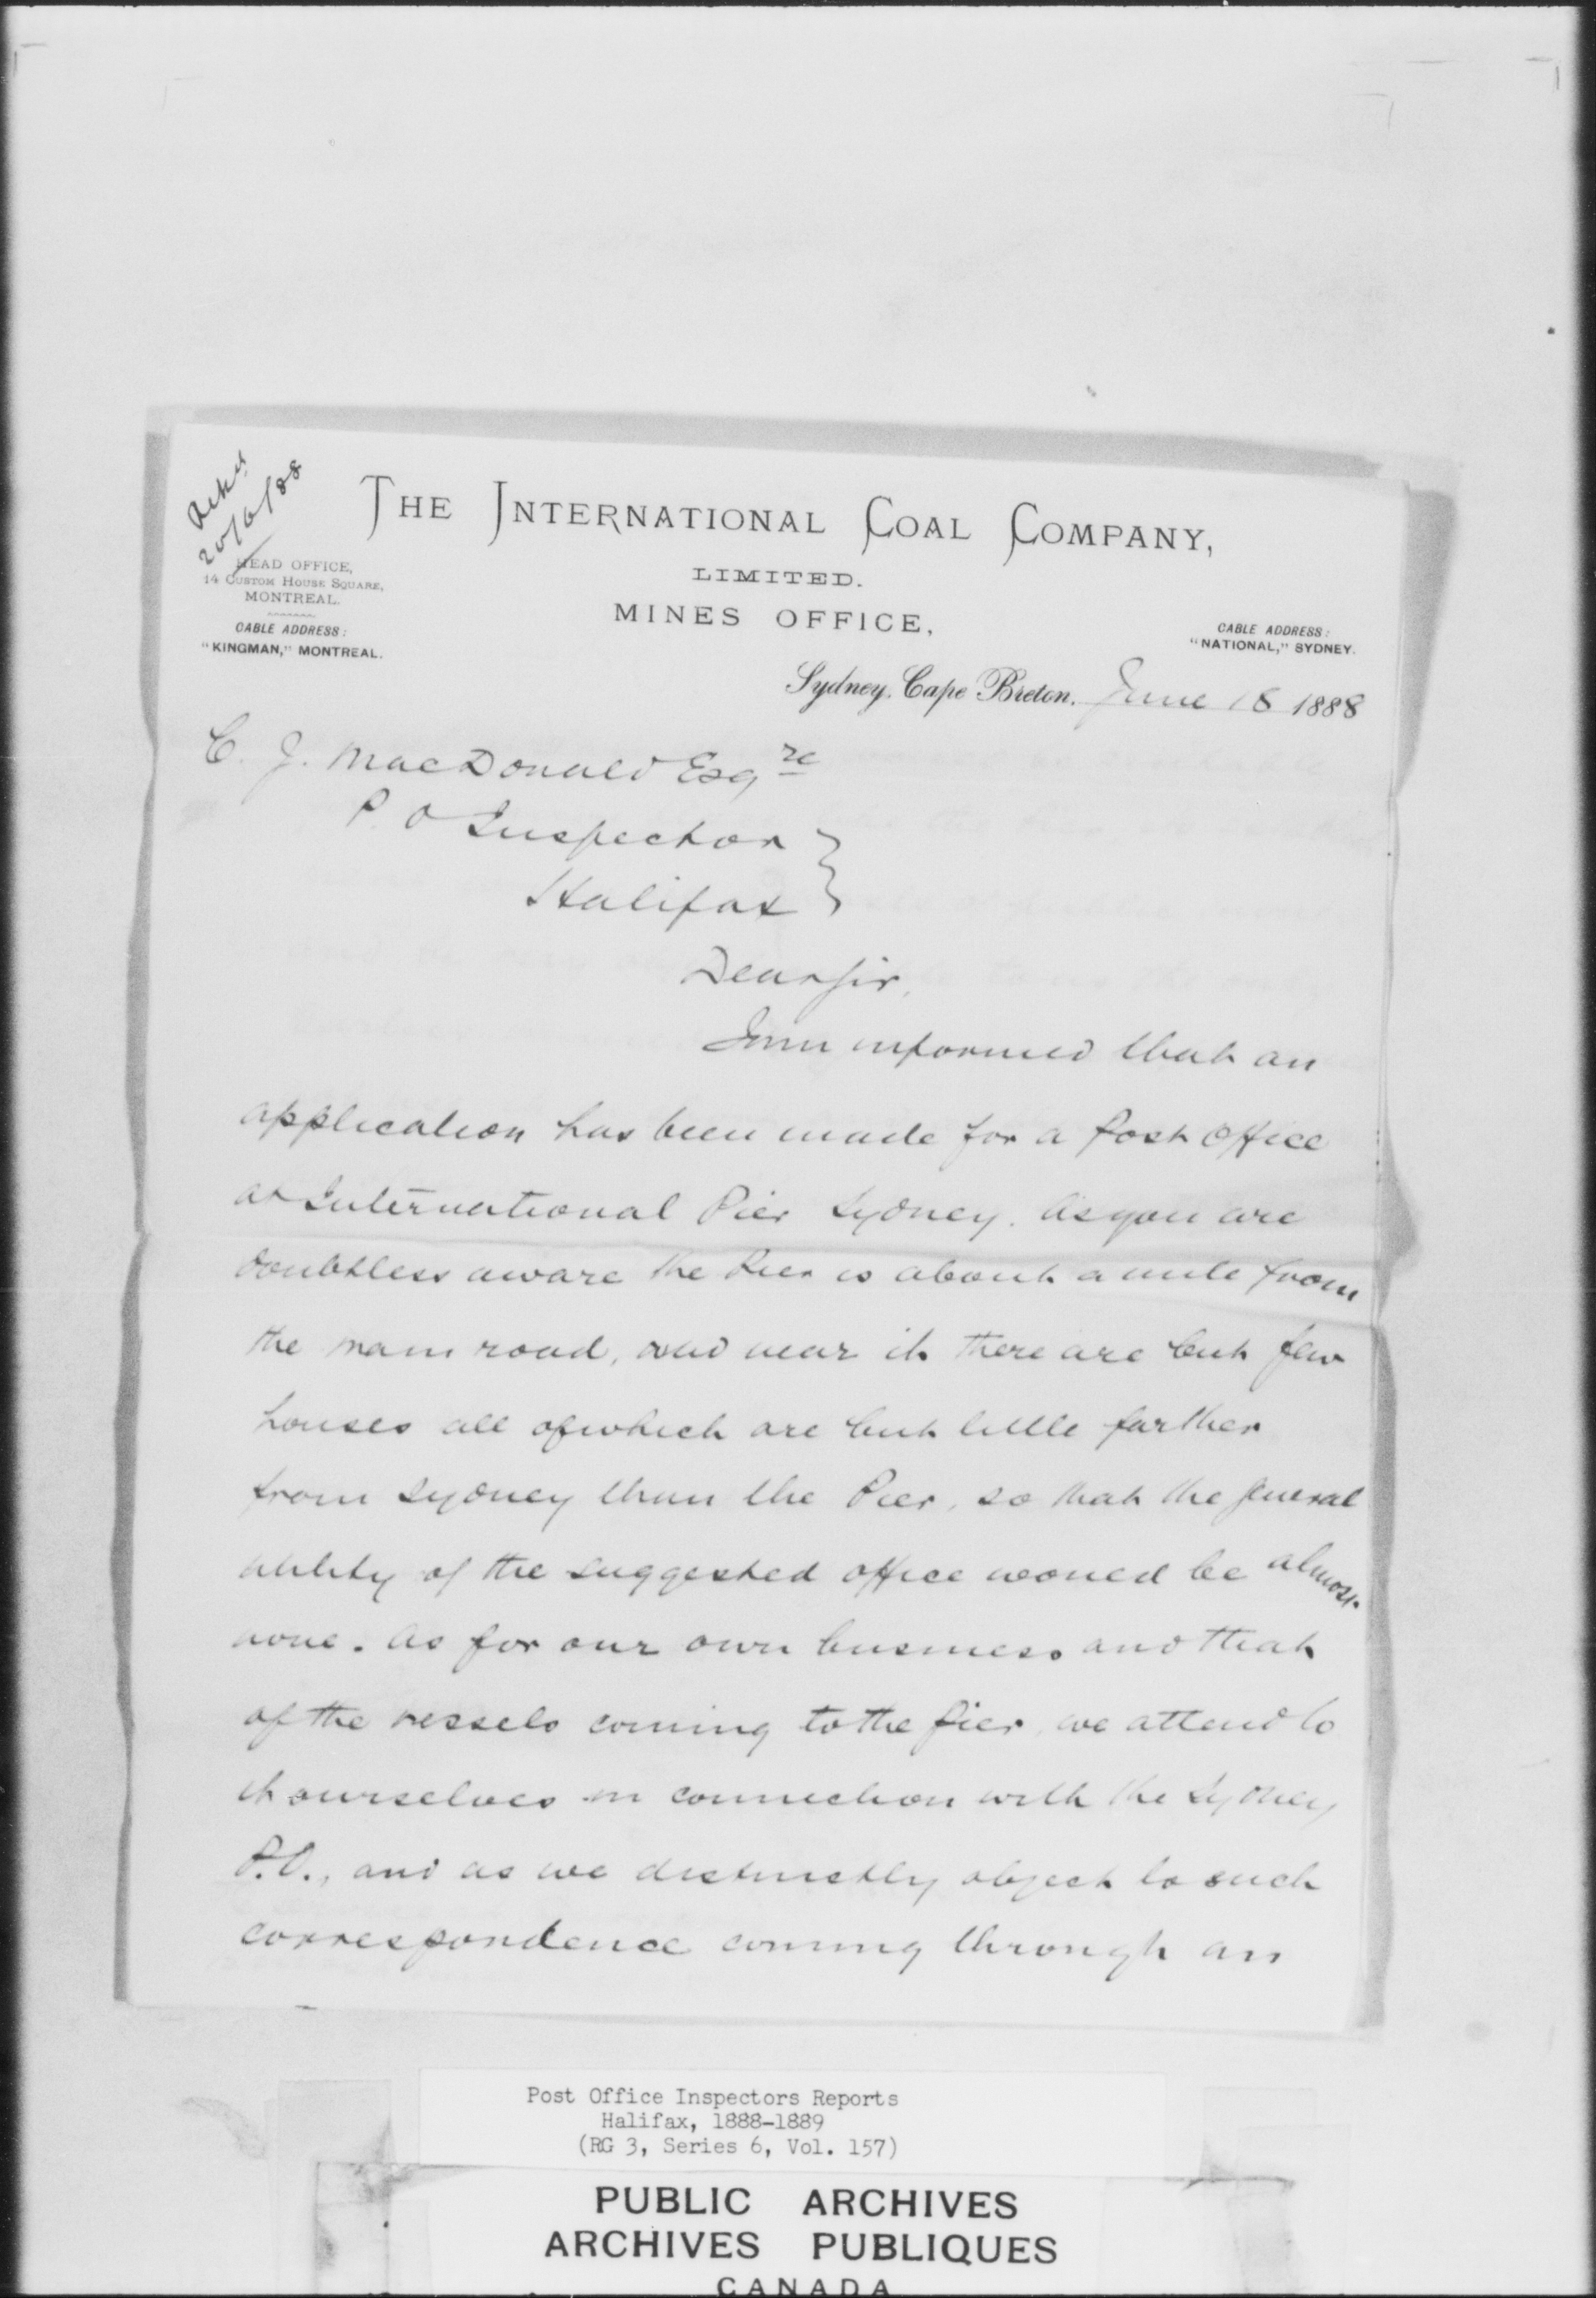 Ackd
20/6/88
THE INTERNATIONAL COAL COMPANY,
LIMITED.
MINES OFFICE,
HEAD OFFICE,
14 CUSTOM HOUSE SQUARE,
MONTREAL.
CABLE ADDRESS:
"KINGMAN," MONTREAL.
CABLE ADDRESS:
"NATIONAL," SYDNEY.
Sydney, Cape Breton, June 18 1888
C. J. MacDonald Esqre
P. O Inspector
Halifax
Dear Sir,
I am informed that an
application has been made for a Post Office
at International Pier Sydney. As you are
doubtless aware the Pier is about a mile from
the main road, and near it there are but few
houses all of which are but little farther
from Sydney than the Pier, so that the general
utility of the suggested office would be almost
none. As for our own business and that
of the vessels coming to the pier, we attend to
it ourselves in connection with the Sydney
P.O., and as we distinctly object to such
correspondence coming through an
Post Office Inspectors Reports
Halifax, 1888-1889
(RG 3, Series 6, Vol. 157)
PUBLIC ARCHIVES
ARCHIVES PUBLIQUES
CANADA